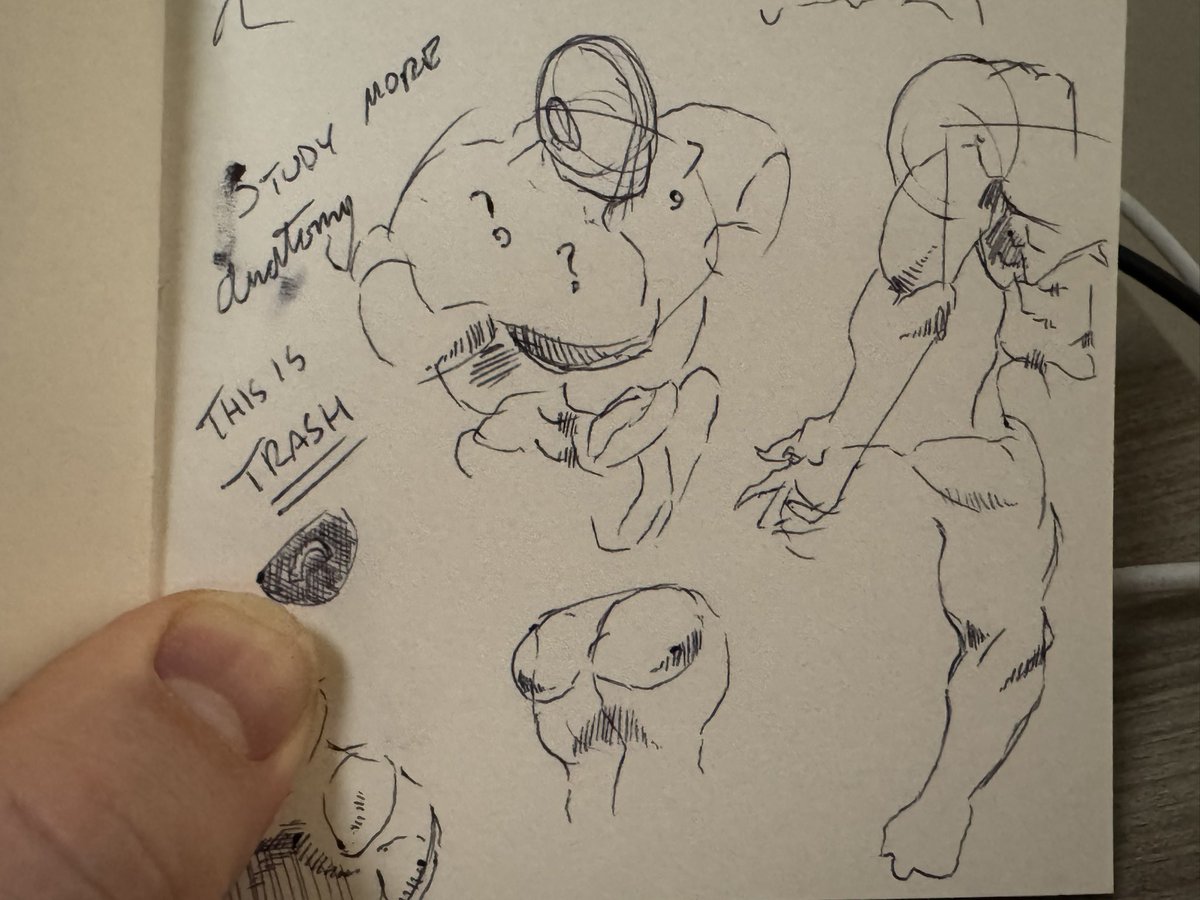 STUDY MORE
anatomy
? ? ?
THIS IS
TRASH